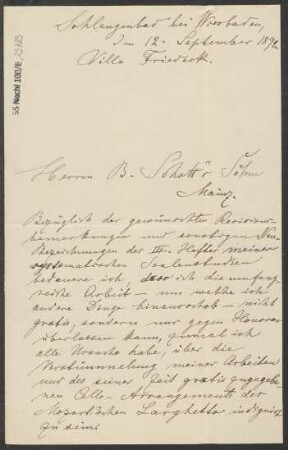 Schlangenbad bei Wiesbaden,
Im 12. September 189
Villa Friedrich.
Herren B. Schott's Söhne
Mainz.
Bezüglich der gewünschten Revisions
bemerkungen und sonstigen Neu
Bezeichnungen des III. Heftes meiner
systematischen Scalenstudien
bedauere ich, dass ich die umfang
reiche Arbeit – um welche ich
andere Dinge hinausschob – nicht
gratis, sondern nur gegen Honorar
überlassen kann, zumal ich
alle Ursache habe, über die
Verstümmelung meiner Arbeiten
und des seiner Zeit gratis zugegebe
nen Cello-Arrangements der
Mozart'schen Larghetto indignirt
zu sein.
55 Nachl 100/B,